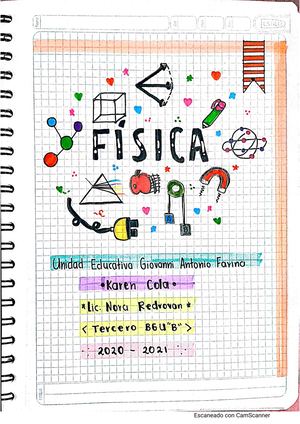 FÍSICA
Unidad Educativa Giovanni Antonio Farina
•Karen Cola•
*Lic. Nora Redrovan*
< Tercero BGU "B" >
2020 - 2021
Escaneado con CamScanner